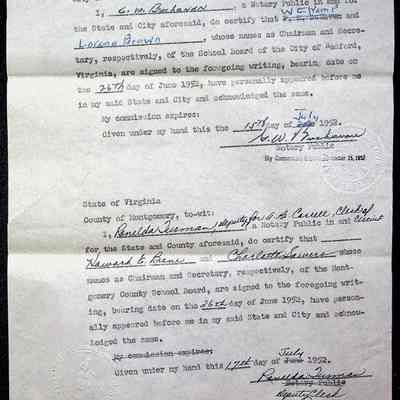 I, G. W. Buchanan, a Notary Public in and for
the State and City aforesaid, do certify that
Lorene Brown, whose names as Chairman and Secre-
tary, respectively, of the School Board of the City of Radford,
Virginia, are signed to the foregoing writing, bearing date on
the 26th day of June 1952, have personally appeared before me
in my said State and City and acknowledged the same.
My commission expires:
Given under my hand this the 15th day of July 1952.
G. W. Buchanan
Notary Public
My Commission 15, 1952
State of Virginia
County of Montgomery, to-wit:
I, deputy for Clerk of
a Notary Public in and Circuit
for the State and County aforesaid, do certify that
Howard E. and Charlotte whose
names as Chairman and Secretary, respectively, of the Mont-
gomery County School Board, are signed to the foregoing writ-
ing, bearing date on the 26th day of June 1952, have person-
ally appeared before me in my said State and City and acknow-
ledged the same.
My commission expires:
Given under my hand this 17th day of June July 1952.
Notary Public
deputy Clerk